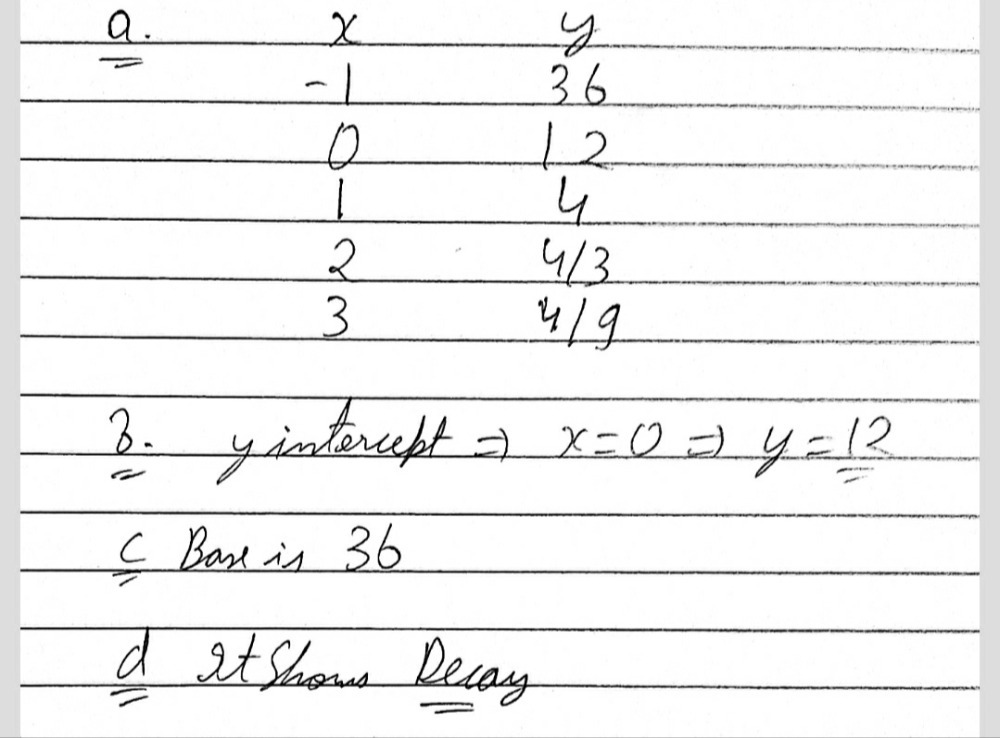 a. x y
-1 36
0 12
1 4
2 4/3
3 4/9
b. y intercept => x=0 => y=12
c Base is 36
d It Shows Decay